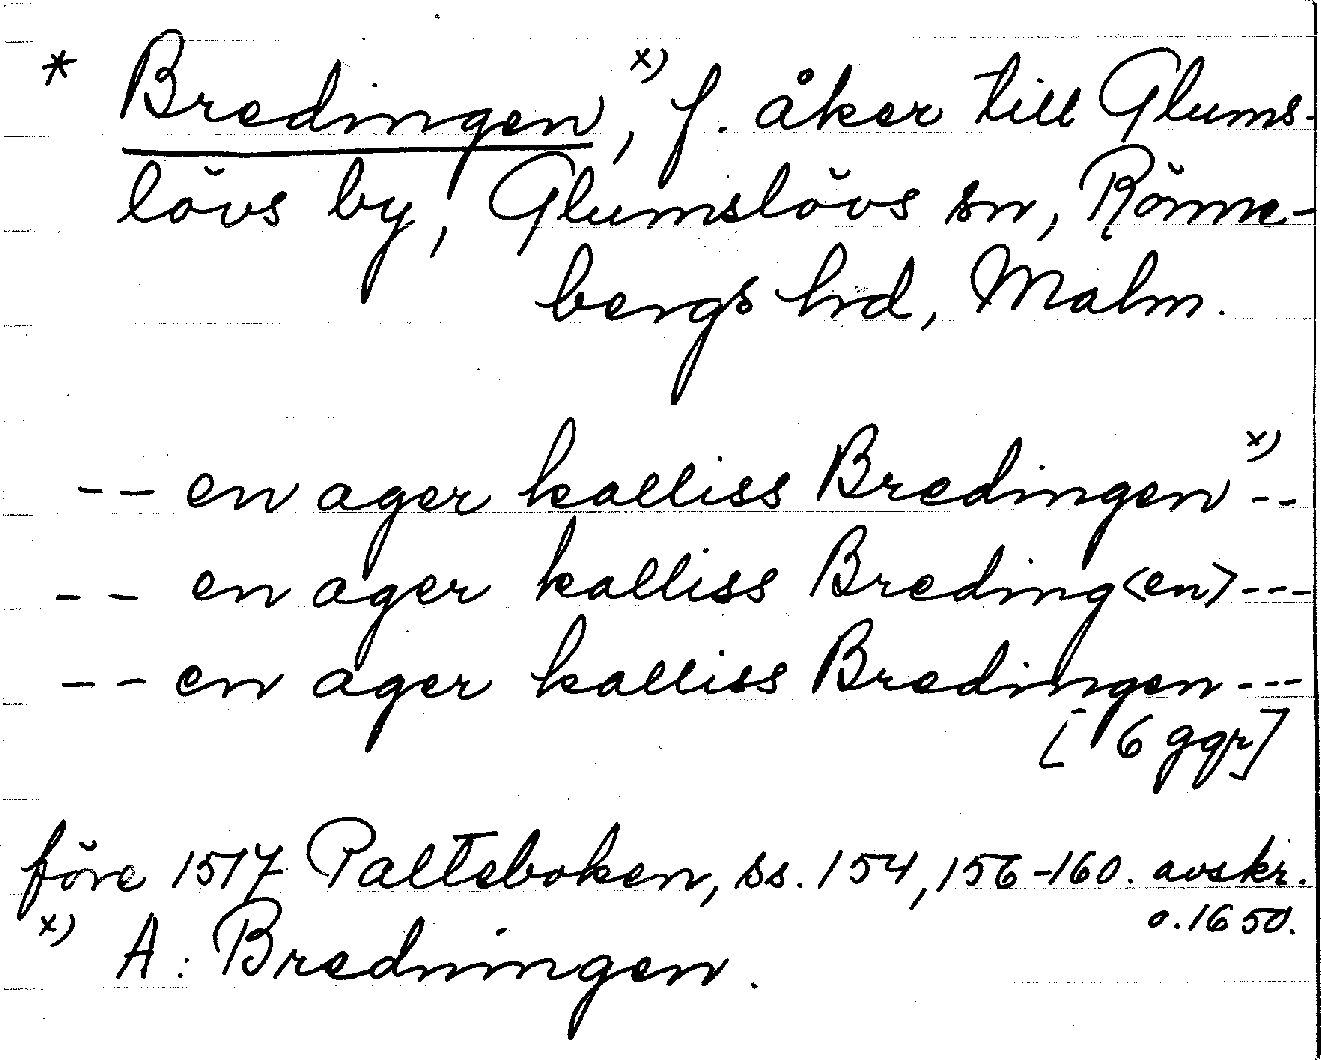 * Bredingen, x) f. åker till Glums-
lövs by, Glumslövs sn, Rönne-
bergs hd, Malm.
-- en ager kalliss Bredingen x) --
-- en ager kalliss Breding<en> ---
-- en ager kalliss Bredingen ---
[6 ggr]
före 1517 Palteboken, ss. 154, 156-160. avskr.
o. 1650.
x) A: Bredningen.